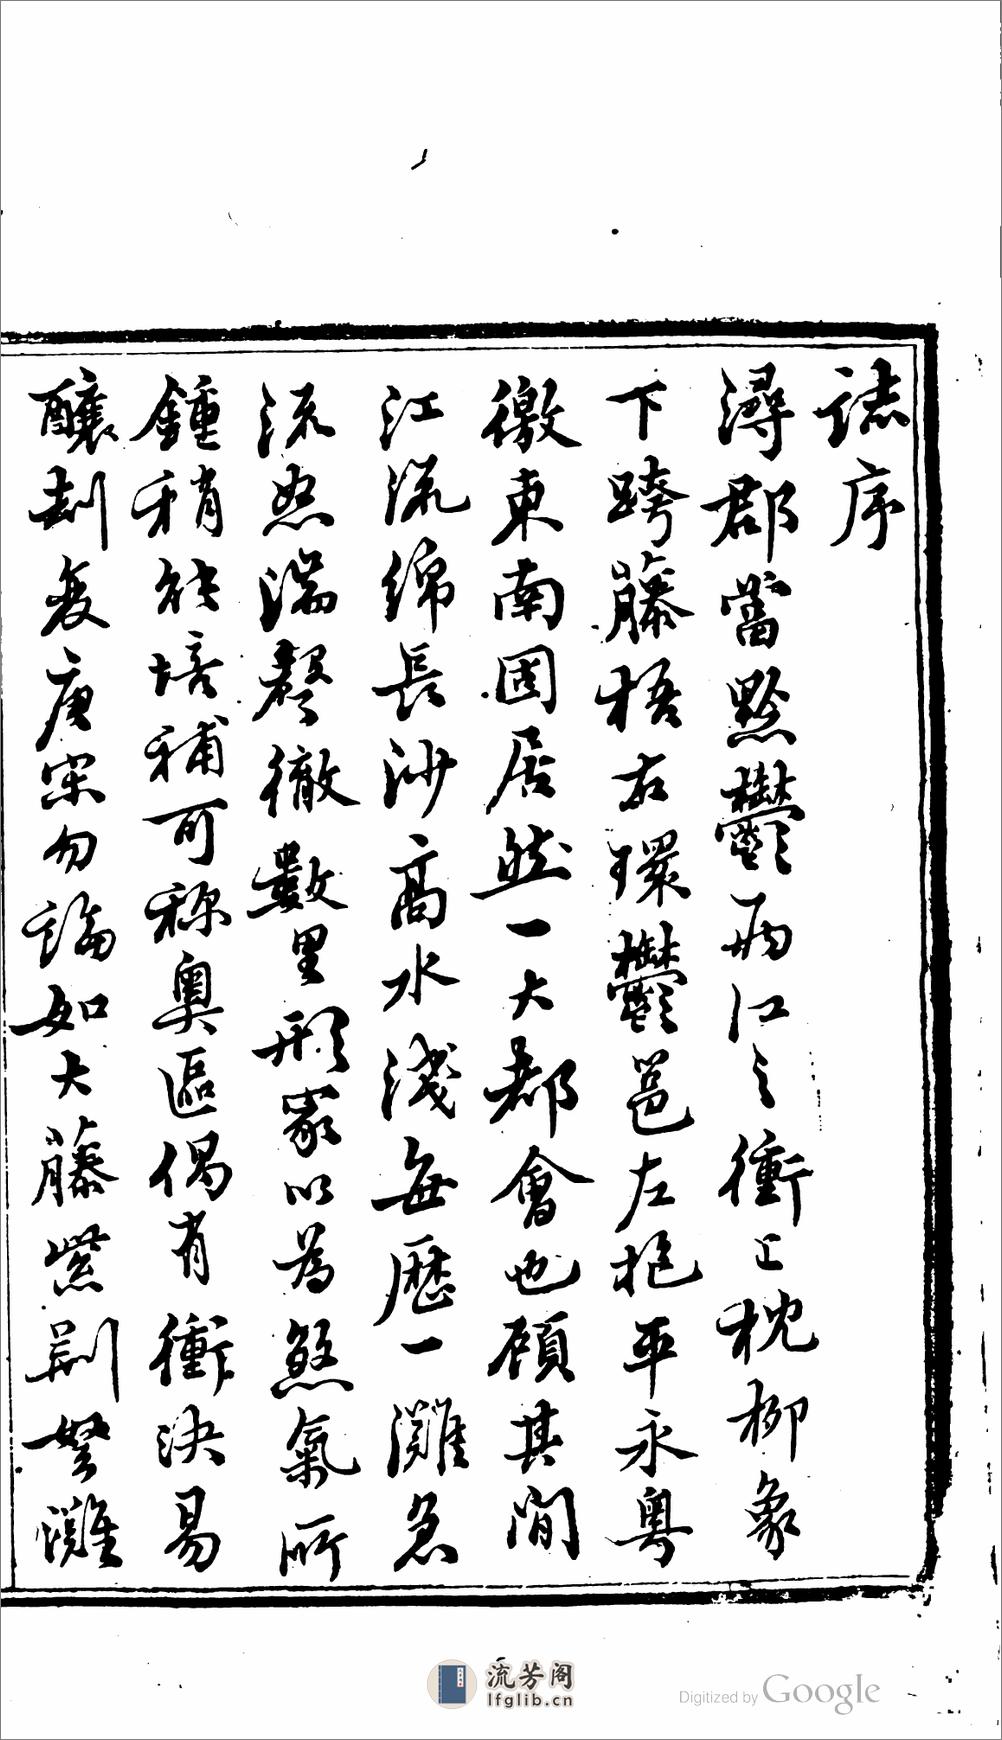 誌序
潯郡當黔鬱兩江之衝上枕柳象
下跨藤梧右環鬱邕左挹平永粵
徼東南固居然一大都會也顧其間
江流綿長沙高水淺每歷一灘急
流怒湍聲徹數里形家以為煞氣所
鍾稍能培補可稱奥區偶有衝決易
釀刦灰唐宋勿論如大藤紫荆弩灘
流芳阁
lfglib.cn
Digitized by Google